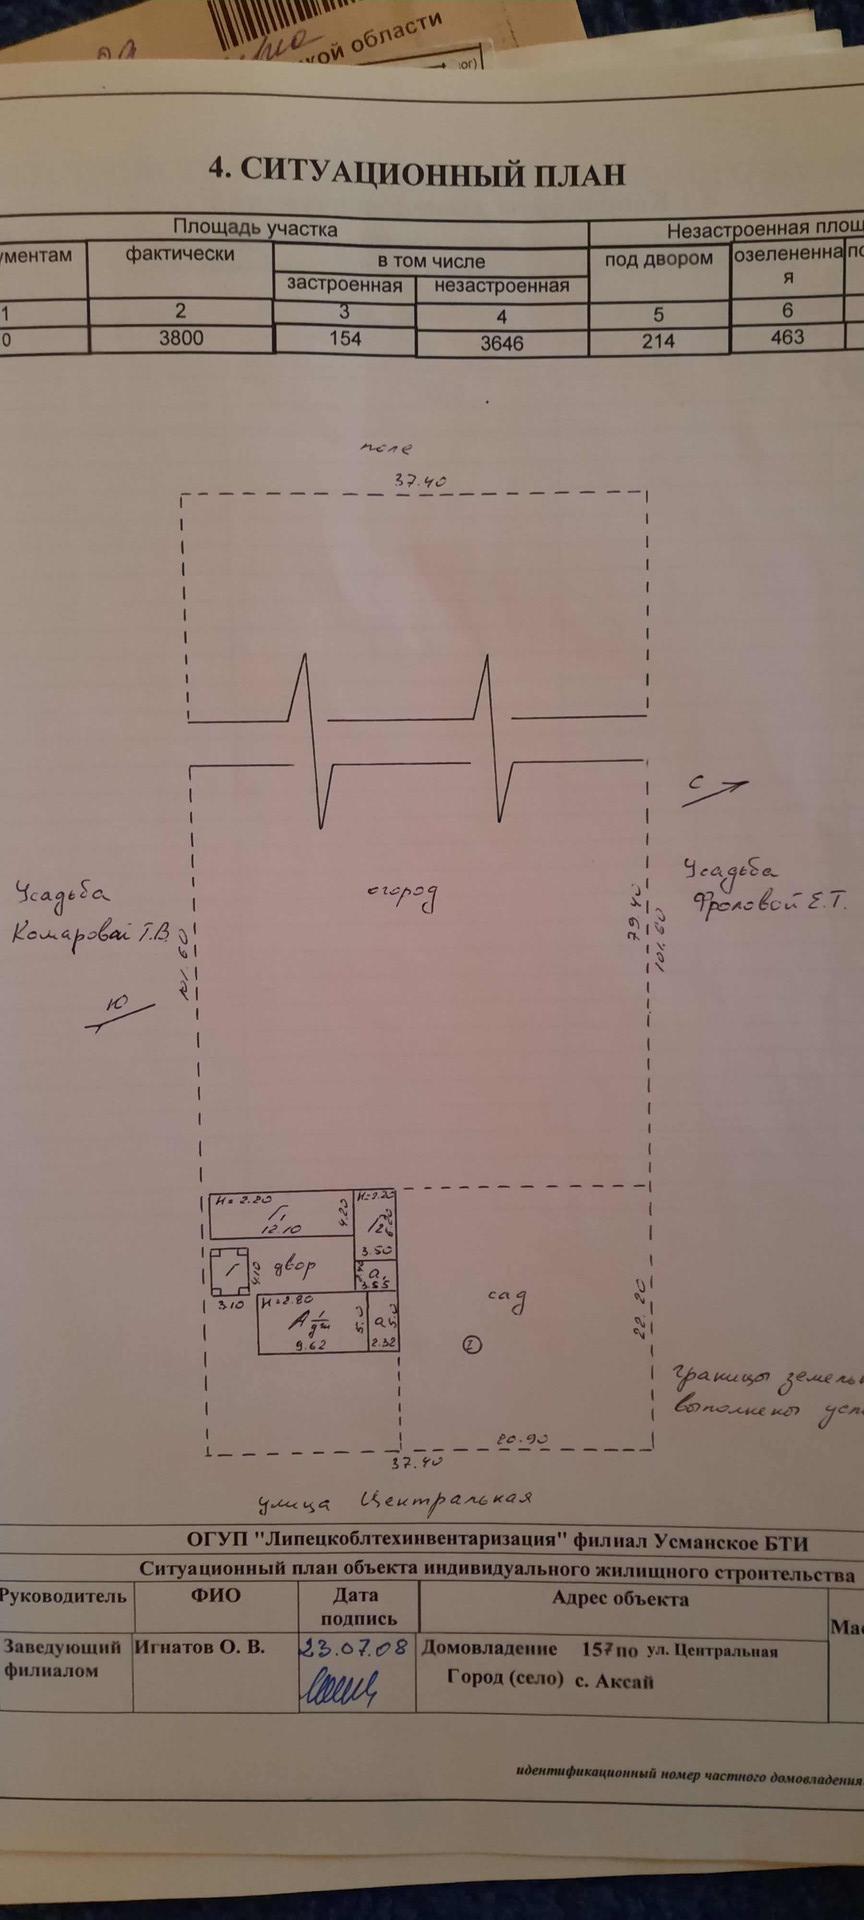 кой области
ог)
4. СИТУАЦИОННЫЙ ПЛАН
Площадь участка
Незастроенная площ
ументам
фактически
в том числе
под двором
озелененна
я
по
застроенная
незастроенная
1
2
3
4
5
6
0
3800
154
3646
214
463
поле
37.40
С
огород
Усадьба
Комаровой Т.В.
Усадьба
Фроловой Е.Т.
79.40
101.60
101.60
Ю
H=2.20
Г1
12.10
4.20
H=2.20
Г2
6.20
3.50
Г
4.10
3.10
двор
а1
3.55
H=2.80
А 1/дш
9.62
5.0
а
5.0
2.32
сад
I
22.20
границы земель
выполнены усл
20.90
37.40
улица Центральная
ОГУП "Липецкоблтехинвентаризация" филиал Усманское БТИ
Ситуационный план объекта индивидуального жилищного строительства
Руководитель
ФИО
Дата
подпись
Адрес объекта
Мас
Заведующий
филиалом
Игнатов О. В.
23.07.08
Домовладение 157 по ул. Центральная
Город (село) с. Аксай
идентификационный номер частного домовладения